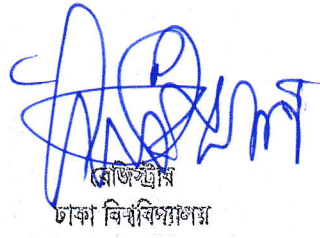 রেজিস্ট্রার
ঢাকা বিশ্ববিদ্যালয়